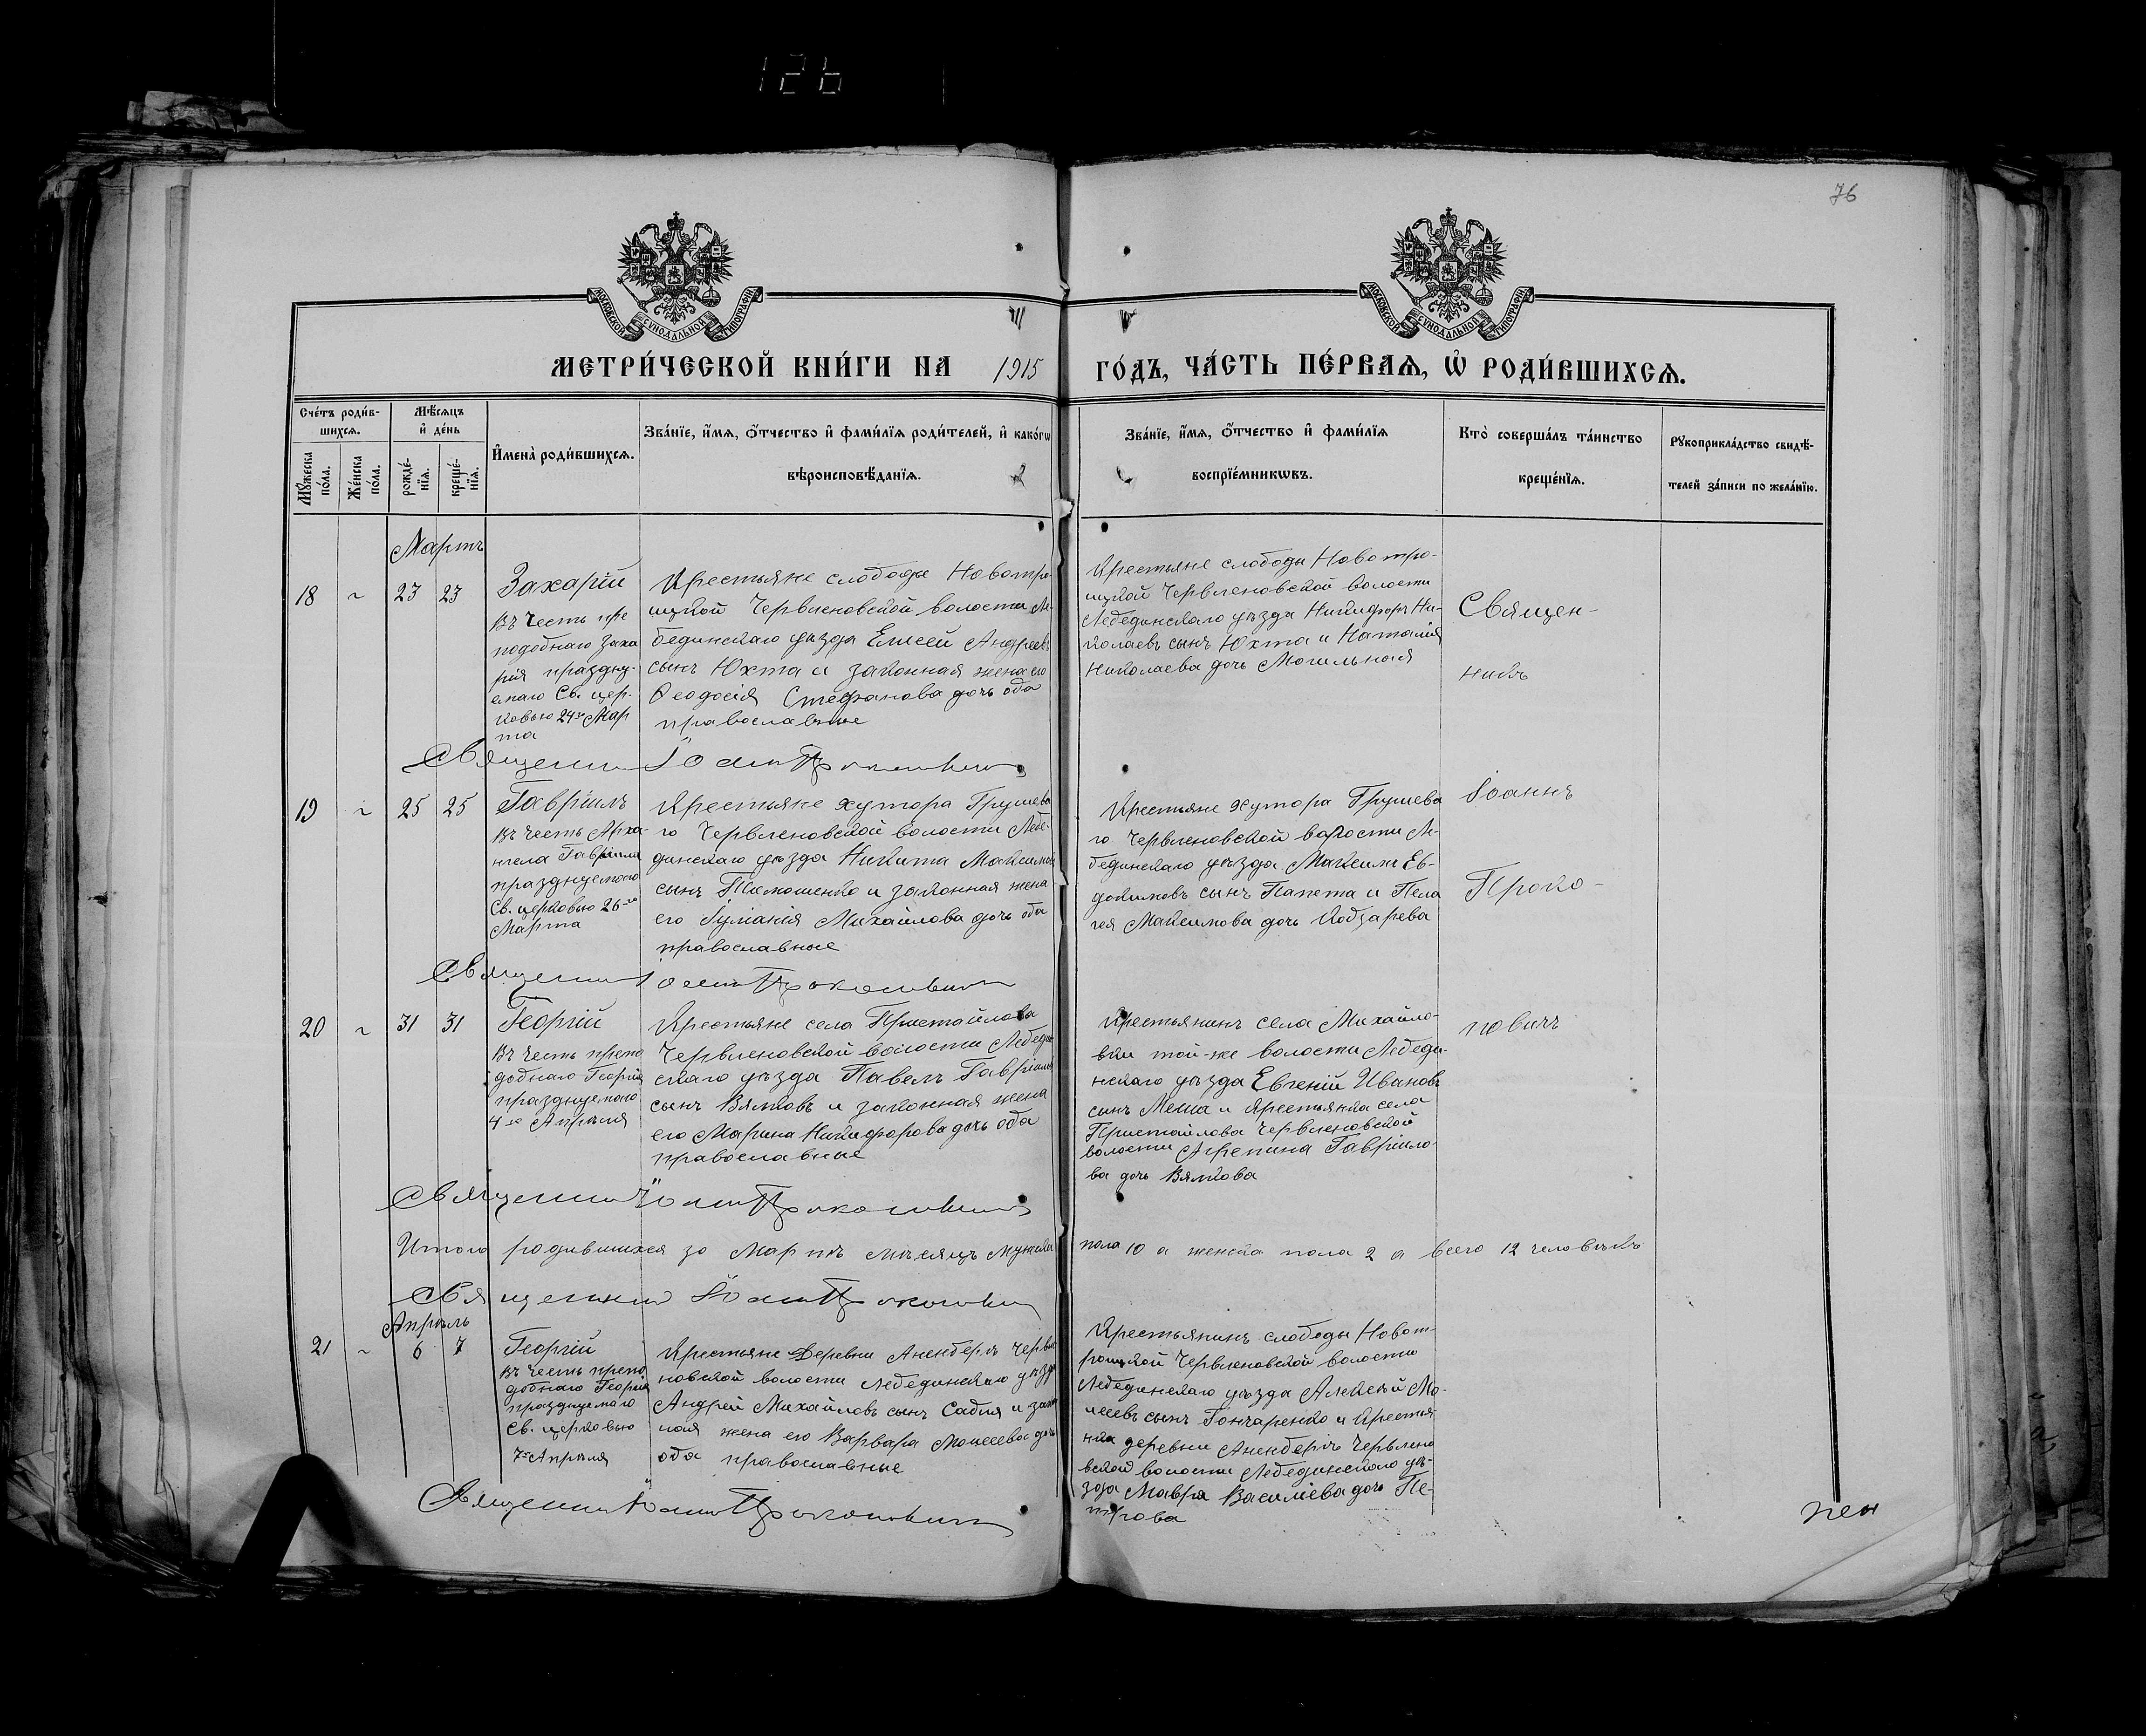 126
76
МОСКОВСКОЙ СѴНОДАЛЬНОЙ ТИПОГРАФІИ
МОСКОВСКОЙ СѴНОДАЛЬНОЙ ТИПОГРАФІИ
МЕТРИ́ЧЕСКОЙ КНИ́ГИ НА 1915 ГО́ДЪ, ЧА́СТЬ ПЕ́РВАѦ, Ѡ҆ РОДИ́ВШИХСѦ.
Сче́тъ роди́в-
шихсѧ.
Мꙋ́жеска по́ла.
Же́нска по́ла.
Мѣ́сѧцъ
и҆ де́нь
рожде́-
нїѧ.
креще́-
нїѧ.
И҆мена̀ роди́вшихсѧ.
Зва́нїе, и҆́мѧ, ѻ҆́тчество и҆ фами́лїѧ роди́телей, и҆ како́гѡ
вѣроисповѣ́данїѧ.
Зва́нїе, и҆́мѧ, ѻ҆́тчество и҆ фами́лїѧ
воспрїе́мникѡвъ.
Кто̀ соверша́лъ та́инство
креще́нїѧ.
Рꙋкоприкла́дство свидѣ́-
телей за́писи по жела́нїю.
Мартъ
18 ~ 23 23
Захарій
въ честь пре
подобнаго Заха
рія праздну-
емаго Св. цер-
ковью 24го Мар
та
Крестьяне слободы Новотро-
ицкой Червленовской волости Ле-
бединскаго уѣзда Елисей Андреевъ
сынъ Юхта и законная жена его
Ѳеодосія Стефанова дочь оба
православные
Крестьяне слободы Новотро-
ицкой Червленовской волости
Лебединскаго уѣзда Никифоръ Ни-
колаевъ сынъ Юхта и Наталія
Николаева дочь Могильная
Священ-
никъ
Іоаннъ
Проко-
повичъ
Священникъ Іоаннъ Прокоповичъ
19 ~ 25 25
Гавріилъ
въ честь Арха-
нгела Гавріила
празднуемого
Св. церковью 26-го
Марта
Крестьяне хутора Грушева
го Червленовской волости Лебе-
динскаго уѣзда Никита Максимовъ
сынъ Тимошенко и законная жена
его Іуліанія Михайлова дочь оба
православные
Крестьяне хутора Грушева
го Червленовской волости Ле-
бединскаго уѣзда Максимъ Ев-
докимовъ сынъ Папета и Пела
гея Максимова дочь Кодзарева
Священникъ Іоаннъ Прокоповичъ
20 ~ 31 31
Георгій
въ честь препо
добнаго Георгія
празднуемого
4го Апрѣля
Крестьяне села Пристайлова
Червленовской волости Лебедин
скаго уѣзда Павелъ Гавріиловъ
сынъ Вялковъ и законная жена
его Марина Никифорова дочь оба
православные
Крестьянинъ села Михайло-
вки той-же волости Лебеди-
нскаго уѣзда Евгеній Ивановъ
сынъ Меша и крестьянка села
Пристайлова Червленовской
волости Агрепина Гавріило-
ва дочь Вялкова
Священникъ Іоаннъ Прокоповичъ
Итого родившихся за Мартъ мѣсяцъ мужска пола 10 а женска пола 2 а всего 12 человѣкъ
Священникъ Іоаннъ Прокоповичъ
Апрѣль
21 ~ 6 7
Георгій
въ честь препо
добнаго Георгія
празднуемаго
Св. церковью
7го Апрѣля
Крестьяне деревни Аненбергъ Червле
новской волости Лебединскаго уѣзда
Андрей Михайловъ сынъ Садля и закон
ная жена его Варвара Моисеева дочь
оба православные
Крестьянинъ слободы Новот-
роицкой Червленовской волости
Лебединскаго уѣзда Алексѣй Мо-
исеевъ сынъ Гончаренко и крестья
нка деревни Аненбергъ Червлено
вской волости Лебединскаго уѣ-
зда Мавра Василіева дочь Пе-
трова
Священникъ Іоаннъ Прокоповичъ